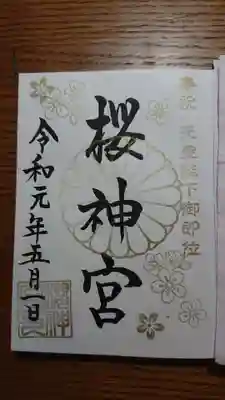 奉祝 天皇陛下御即位
櫻神宮
令和元年五月一日